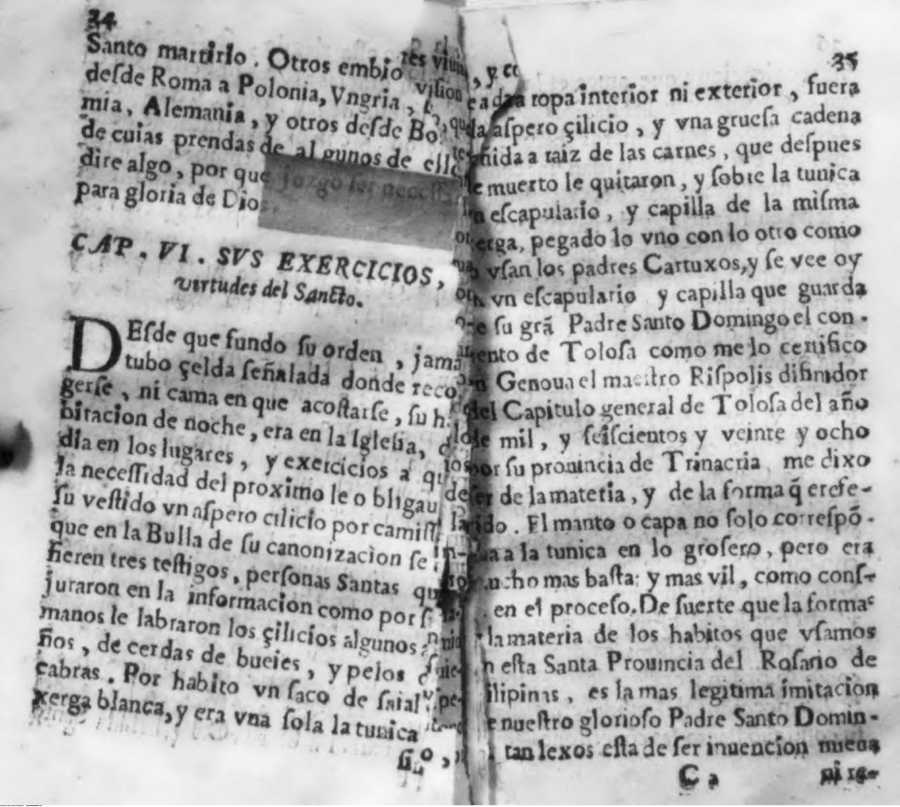 34
Santo martirio. Otros embio
desde Roma a Polonia, Vngria,
mia, Alemania, y otros desde Bo
de cuias prendas de algunos de ello
dire algo, por que jozgo ser necess
para gloria de Dios.
CAP. VI. SVS EXERCICIOS,
virtudes del Sancto.
DEsde que fundo su orden, jama
tubo çelda señalada donde reco
gerse, ni cama en que acostarse, su h
bitacion de noche, era en la Iglesia, d
dia en los lugares, y exercicios a qu
la necessidad del proximo le obligau
su vestido vn aspero cilicio por camis
que en la Bulla de su canonizacion se
fieren tres testigos, personas Santas qu
juraron en la informacion como por s
manos le labraron los çilicios algunos
ños, de cerdas de bueies, y pelos
cabras. Por habito vn saco de saial
xerga blanca, y era vna sola la tunica
35
ropa interior ni exterior, fuera
aspero çilicio, y vna gruesa cadena
ñida a raiz de las carnes, que despues
e muerto le quitaron, y sobre la tunica
n escapulario, y capilla de la misma
erga, pegado lo vno con lo otro como
vsan los padres Cartuxos, y se vee oy
vn escapulario y capilla que guarda
su grã Padre Santo Domingo el con-
ento de Tolosa como me lo certifico
n Genoua el maestro Rispolis difinidor
del Capitulo general de Tolosa del año
de mil, y seiscientos y veinte y ocho
por su prouincia de Trinacria, me dixo
ser de la materia, y de la forma q̃ erefe-
ido. El manto o capa no solo correspõ-
a a la tunica en lo grosero, pero era
ucho mas basta: y mas vil, como cons-
en el proceso. De suerte que la forma
la materia de los habitos que vsamos
n esta Santa Prouincia del Rosario de
ilipinas, es la mas legitima imitacion
e nuestro glorioso Padre Santo Domin-
tan lexos esta de ser inuencion nueua
C 2